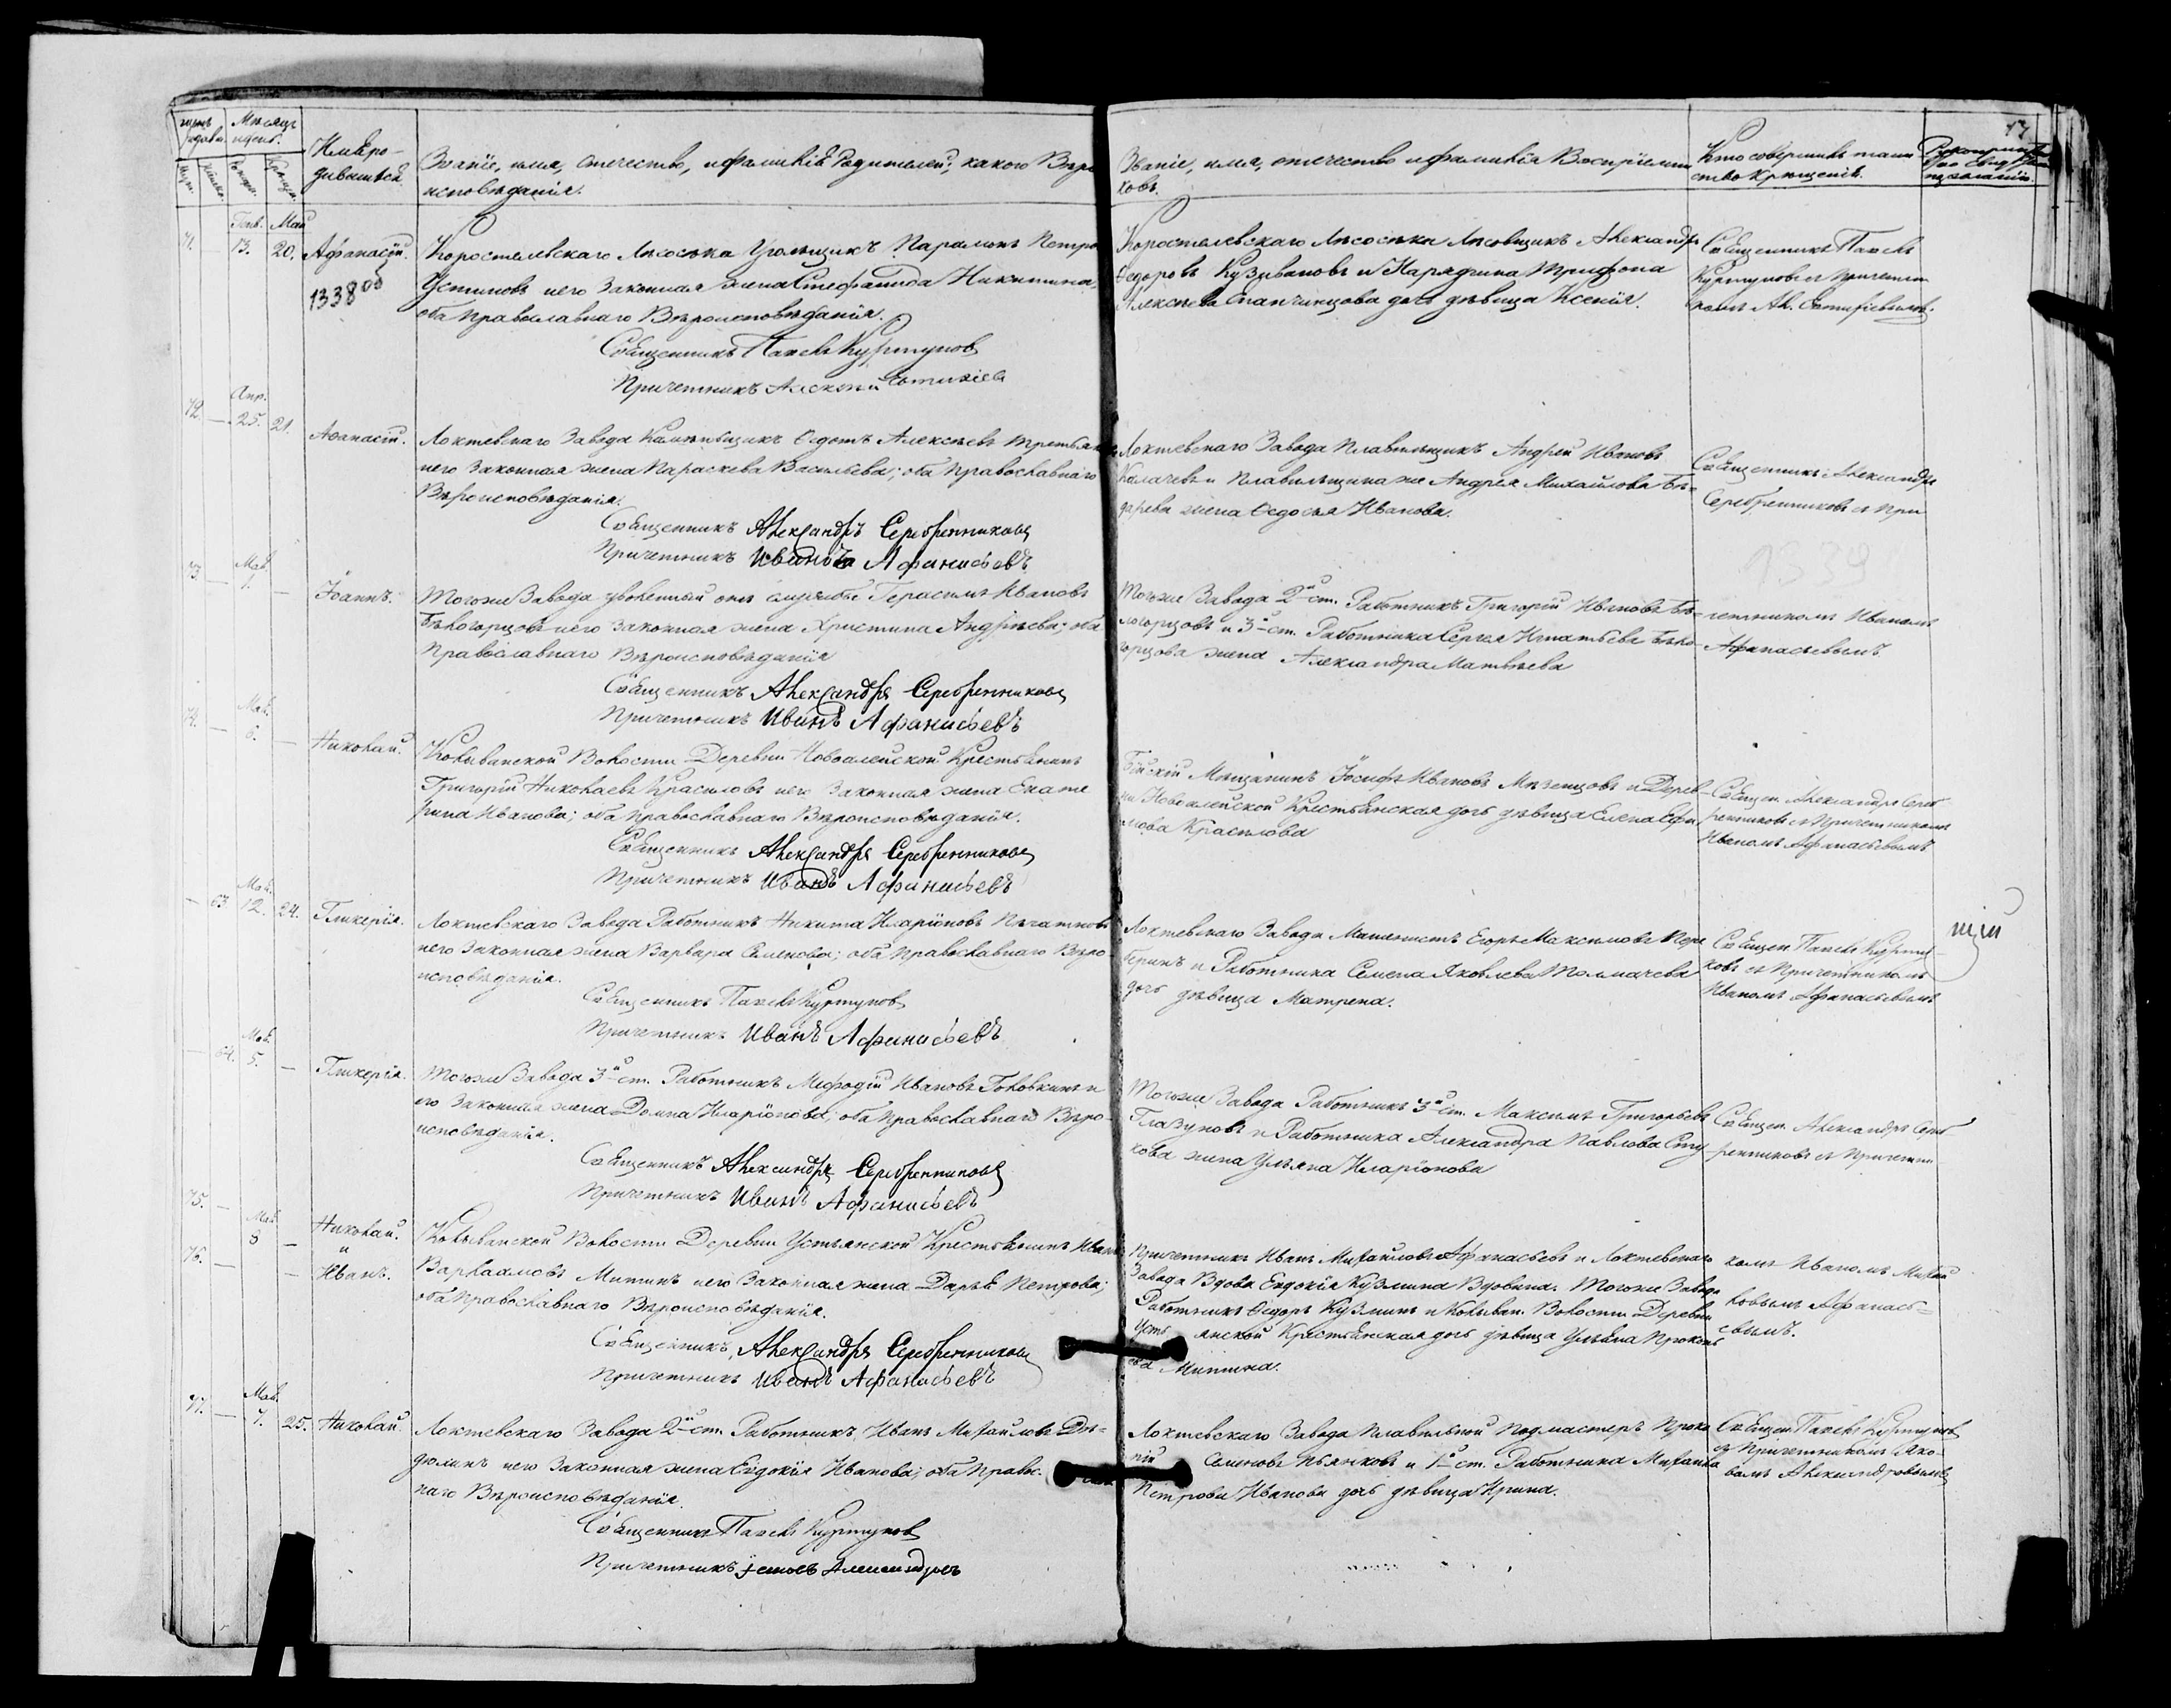 Мѣсяцъ
и день.
Имя ро-
дившихся
Званіе, имя, отечество, и фамилія Родителей, какого Вѣро
исповѣданія.
Званіе, имя, отечество и фамилія Воспріемни
ковъ.
Кто совершилъ таин
ство Крещенія.
71. — 13. Май 20. Афанасій.
1338 об
Коростелевскаго Лѣсосѣка Угольщикъ Парамонъ Петро
Устиновъ и его Законная жена Стефанида Никитина,
оба Православнаго Вѣроисповѣданія.
Священникъ Павелъ Куртуков
Причетникъ Алексѣй
Коростелевскаго Лѣсосѣки Лѣсовщикъ Александръ
Федоровъ и Нарядчика Трифона
Алексѣева Епанчинцова дочь дѣвица Ксенія.
Священникъ Павелъ
Куртуковъ с Причетни
комъ Ал.
72. — Апр. 25. 21. Афанасій.
Локтевскаго Завода Федотъ Алексѣевъ Третьяк
и его Законная жена Параскева Васильева; оба Православнаго
Вѣроисповѣданія.
Священникъ Александръ Серебренниковъ
Причетникъ Иванъ Афанасьевъ
Локтевскаго Завода Плавильщикъ Андрей Ивановъ
Калачевъ и Плавильщика же Андрея Михайлова Бѣ-
дарева жена Федосья Иванова.
Священникъ Александръ
Серебренниковъ с При
73. — Май 1. — Іоаннъ.
Тогоже Завода уволенный отъ службы Герасимъ Ивановъ
Бѣлогорцовъ и его законная жена Христина Андрѣева; оба
Православнаго Вѣроисповѣданія
Священникъ Александръ Серебренниковъ
Причетникъ Иванъ Афанасьевъ
Тогоже Завода 2й ст. Работникъ Григорій Ивановъ Бѣ-
логорцовъ и 3й ст. Работника Сергѣя Игнатьева Бѣло-
горцова жена Александра Матвѣева
четникомъ Иваномъ
Афанасьевымъ
74. — Май. 6. — Николай.
Колыванской Волости Деревни Новоалейской Крестьянинъ
Григорій Николаевъ Красиловъ и его Законная жена Екате
рина Иванова; оба Православнаго Вѣроисповѣданія.
Священникъ Александръ Серебренниковъ
Причетникъ Иванъ Афанасьевъ
Бійскій Мѣщанинъ Іосифъ Ивановъ Мѣзенцовъ и Дерев-
ни Новоалейской Крестьянская дочь дѣвица Елена Ефи
мова Красилова
Священ. Александръ Сереб
ренниковъ с Причетникомъ
Иваномъ Афанасьевымъ
— 63. Май. 12. 24. Гликерія.
Локтевскаго Завода Работникъ Никита Иларіоновъ
и его Законная жена Варвара Семенова; оба Православнаго Вѣро
исповѣданія.
Священникъ Павелъ Куртуков
Причетникъ Иванъ Афанасьевъ
Локтевскаго Завода Машинистъ Егоръ Максимовъ
и Работника Семена Яковлева Толмачева
дочь дѣвица Матрена.
Священ. Павелъ Курту-
ковъ с Причетникомъ
Иваномъ Афанасьевымъ
— 64. Май. 5. — Гликерія.
Тогоже Завода 3й ст. Работникъ Мефодій Ивановъ Головкинъ и
его Законная жена Домна Иларіонова; оба Православнаго Вѣро-
исповѣданія.
Священникъ Александръ Серебренниковъ
Причетникъ Иванъ Афанасьевъ
Тогоже Завода Работникъ 3й ст. Максимъ Григорьевъ
Глазуновъ и Работника Александра Павлова
кова жена Ульяна Иларіонова
Священ. Александръ Сереб
ренниковъ с Причетни
75. — Май 8 — Николай.
и
76. — — Иванъ.
Колыванской Волости Деревни Устьянской Крестьянинъ Иванъ
Варлаамовъ Митинъ и его Законная жена Дарья Петрова;
оба Православнаго Вѣроисповѣданія.
Священникъ Александръ Серебренниковъ
Причетникъ Иванъ Афанасьевъ
Причетникъ Иванъ Михайловъ Афанасьевъ и Локтевскаго
Завода Вдова Евдокія Кузмина Вдовина. Тогоже Завода
Работникъ Федоръ Кузминъ и Колыван. Волости Деревни
Усть янской Крестьянская дочь дѣвица Ульяна Прокопь
ева Митина.
комъ Иваномъ Михай
ловымъ Афанасьевымъ.
77. — Май. 7. 25. Николай.
Локтевскаго Завода 2й ст. Работникъ Иванъ Михайловъ
и его Законная жена Евдокія Иванова; оба Правос-
наго Вѣроисповѣданія.
Священникъ Павелъ Куртуков
Причетникъ Яковъ Александровъ
Локтевскаго Завода Плавильной Подмастеръ Проко
пій Семеновъ Пьянковъ и 1й ст. Работника Михаила
Петрова Иванова дочь дѣвица Ирина.
Священ. Павелъ Куртуковъ
съ Причетникомъ Яко-
вомъ Александровымъ